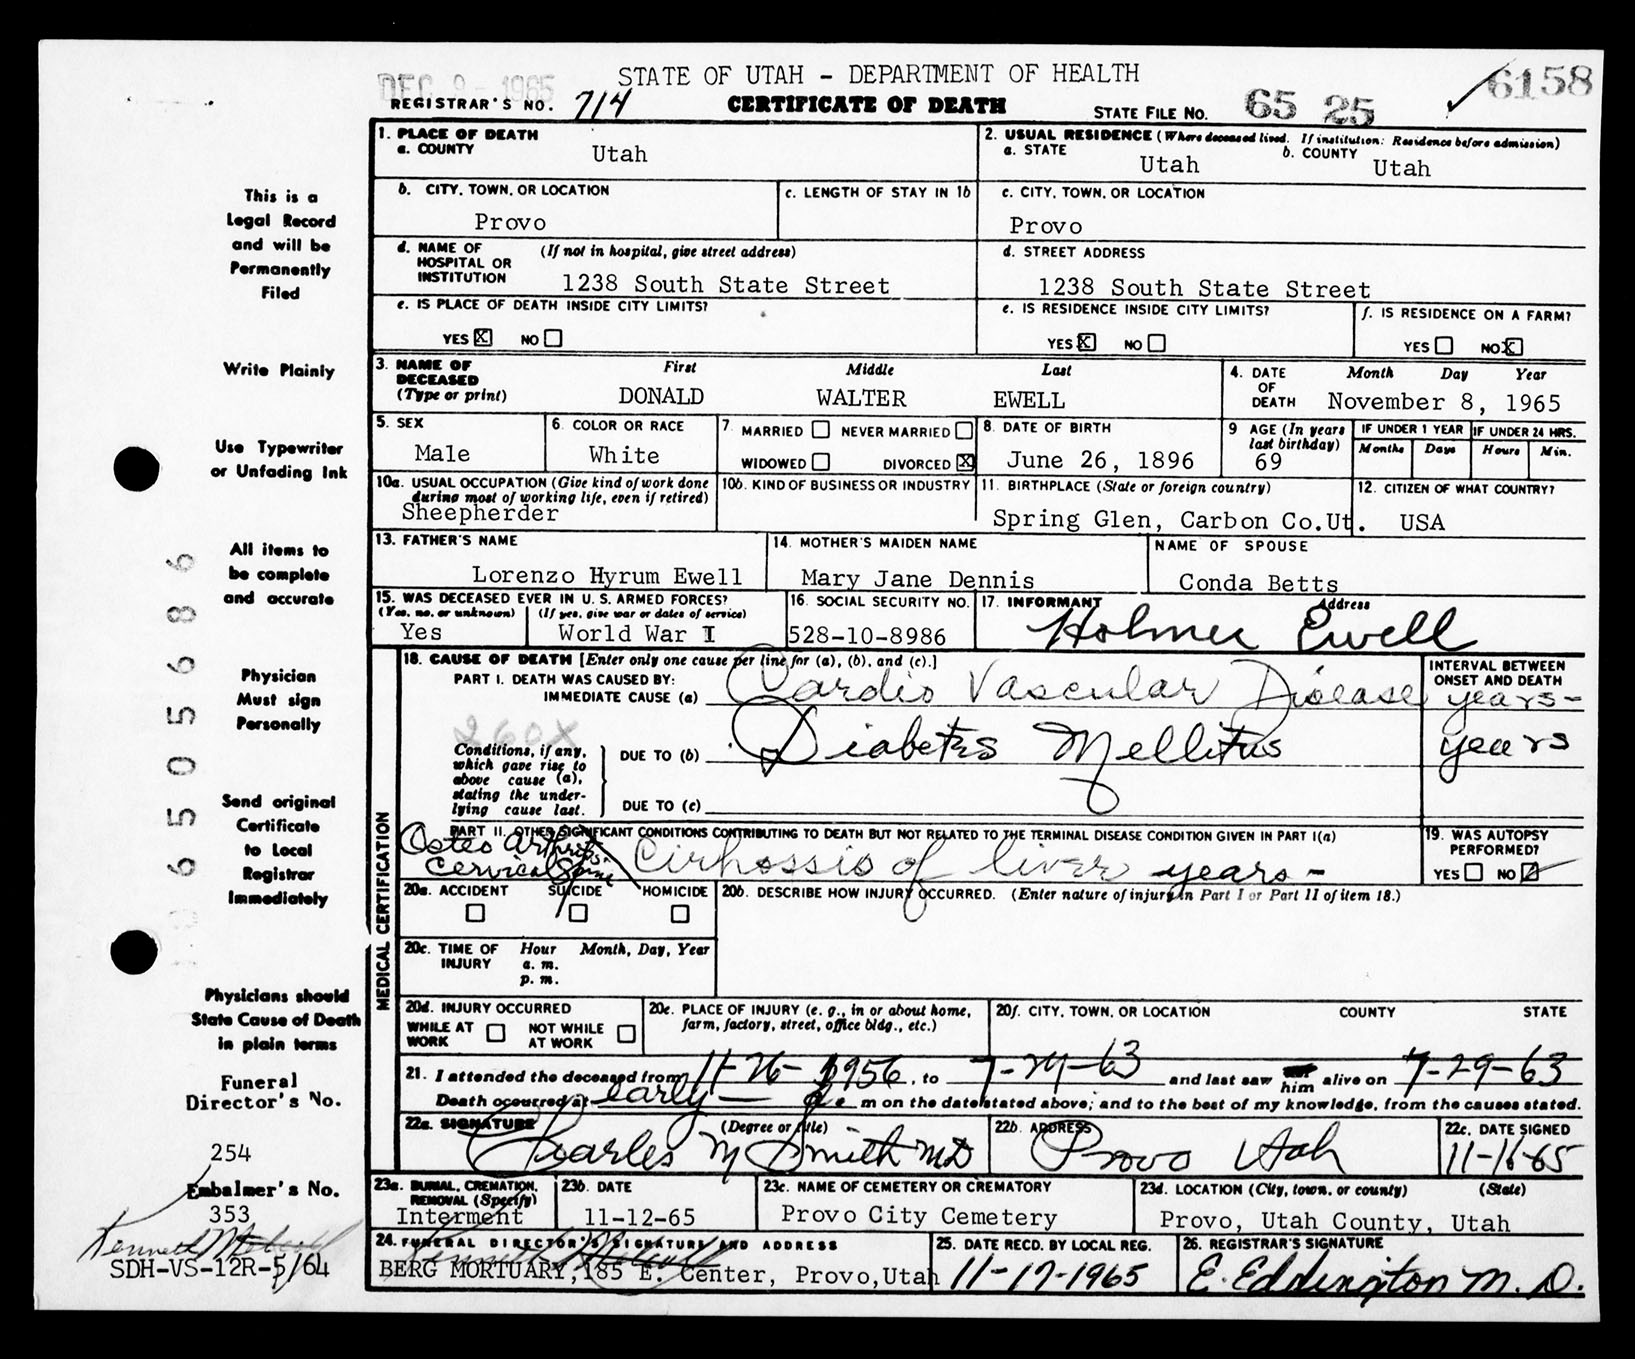 DEC 9 - 1965
STATE OF UTAH - DEPARTMENT OF HEALTH
6158
REGISTRAR'S NO. 714
CERTIFICATE OF DEATH
STATE FILE NO. 65 25
This is a
Legal Record
and will be
Permanently
Filed
Write Plainly
Use Typewriter
or Unfading Ink
All items to
be complete
and accurate
Physician
Must sign
Personally
Send original
Certificate
to Local
Registrar
Immediately
Physicians should
State Cause of Death
in plain terms
Funeral
Director's No.
254
Embalmer's No.
353
SDH-VS-12R-5/64
6 5 0 5 6 8 6
1. PLACE OF DEATH
a. COUNTY Utah
2. USUAL RESIDENCE (Where deceased lived. If institution: Residence before admission)
a. STATE Utah b. COUNTY Utah
b. CITY, TOWN, OR LOCATION Provo
c. LENGTH OF STAY IN 1b
c. CITY, TOWN, OR LOCATION Provo
d. NAME OF (If not in hospital, give street address)
HOSPITAL OR
INSTITUTION 1238 South State Street
d. STREET ADDRESS
1238 South State Street
e. IS PLACE OF DEATH INSIDE CITY LIMITS?
YES X NO
e. IS RESIDENCE INSIDE CITY LIMITS?
YES X NO
f. IS RESIDENCE ON A FARM?
YES NO X
3. NAME OF First Middle Last
DECEASED
(Type or print) DONALD WALTER EWELL
4. DATE Month Day Year
OF
DEATH November 8, 1965
5. SEX
Male
6. COLOR OR RACE
White
7. MARRIED NEVER MARRIED
WIDOWED DIVORCED X
8. DATE OF BIRTH
June 26, 1896
9 AGE (In years
last birthday)
69
IF UNDER 1 YEAR IF UNDER 24 HRS.
Months Days Hours Min.
10a. USUAL OCCUPATION (Give kind of work done
during most of working life, even if retired)
Sheepherder
10b. KIND OF BUSINESS OR INDUSTRY
11. BIRTHPLACE (State or foreign country)
Spring Glen, Carbon Co.Ut.
12. CITIZEN OF WHAT COUNTRY?
USA
13. FATHER'S NAME
Lorenzo Hyrum Ewell
14. MOTHER'S MAIDEN NAME
Mary Jane Dennis
NAME OF SPOUSE
Conda Betts
15. WAS DECEASED EVER IN U.S. ARMED FORCES?
(Yes, no, or unknown) (If yes, give war or dates of service)
Yes World War I
16. SOCIAL SECURITY NO.
528-10-8986
17. INFORMANT Address
Holmer Ewell
MEDICAL CERTIFICATION
18. CAUSE OF DEATH [Enter only one cause per line for (a), (b), and (c).]
PART I. DEATH WAS CAUSED BY:
IMMEDIATE CAUSE (a) Cardio Vascular Disease
INTERVAL BETWEEN
ONSET AND DEATH
years-
260X
Conditions, if any,
which gave rise to
above cause (a),
stating the under-
lying cause last.
DUE TO (b) Diabetes Mellitus years
DUE TO (c)
PART II. OTHER SIGNIFICANT CONDITIONS CONTRIBUTING TO DEATH BUT NOT RELATED TO THE TERMINAL DISEASE CONDITION GIVEN IN PART I(a)
Osteo Arthritis
Cervical Spine
Cirhossis of liver years-
19. WAS AUTOPSY
PERFORMED?
YES NO
20a. ACCIDENT SUICIDE HOMICIDE
20b. DESCRIBE HOW INJURY OCCURRED. (Enter nature of injury in Part I or Part II of item 18.)
20c. TIME OF Hour Month, Day, Year
INJURY a. m.
p. m.
20d. INJURY OCCURRED
WHILE AT WORK NOT WHILE AT WORK
20e. PLACE OF INJURY (e. g., in or about home,
farm, factory, street, office bldg., etc.)
20f. CITY, TOWN, OR LOCATION COUNTY STATE
21. I attended the deceased from 11-26-1956, to 7-29-63 and last saw him alive on 7-29-63
Death occurred at early - a m on the date stated above; and to the best of my knowledge, from the causes stated.
22a. SIGNATURE (Degree or title)
Charles M Smith MD
22b. ADDRESS
Provo Utah
22c. DATE SIGNED
11-16-65
23a. BURIAL, CREMATION,
REMOVAL (Specify)
Interment
23b. DATE
11-12-65
23c. NAME OF CEMETERY OR CREMATORY
Provo City Cemetery
23d. LOCATION (City, town, or county) (State)
Provo, Utah County, Utah
24. FUNERAL DIRECTOR'S SIGNATURE AND ADDRESS
BERG MORTUARY, 185 E. Center, Provo, Utah
25. DATE RECD. BY LOCAL REG.
11-17-1965
26. REGISTRAR'S SIGNATURE
E. Eddington M. D.